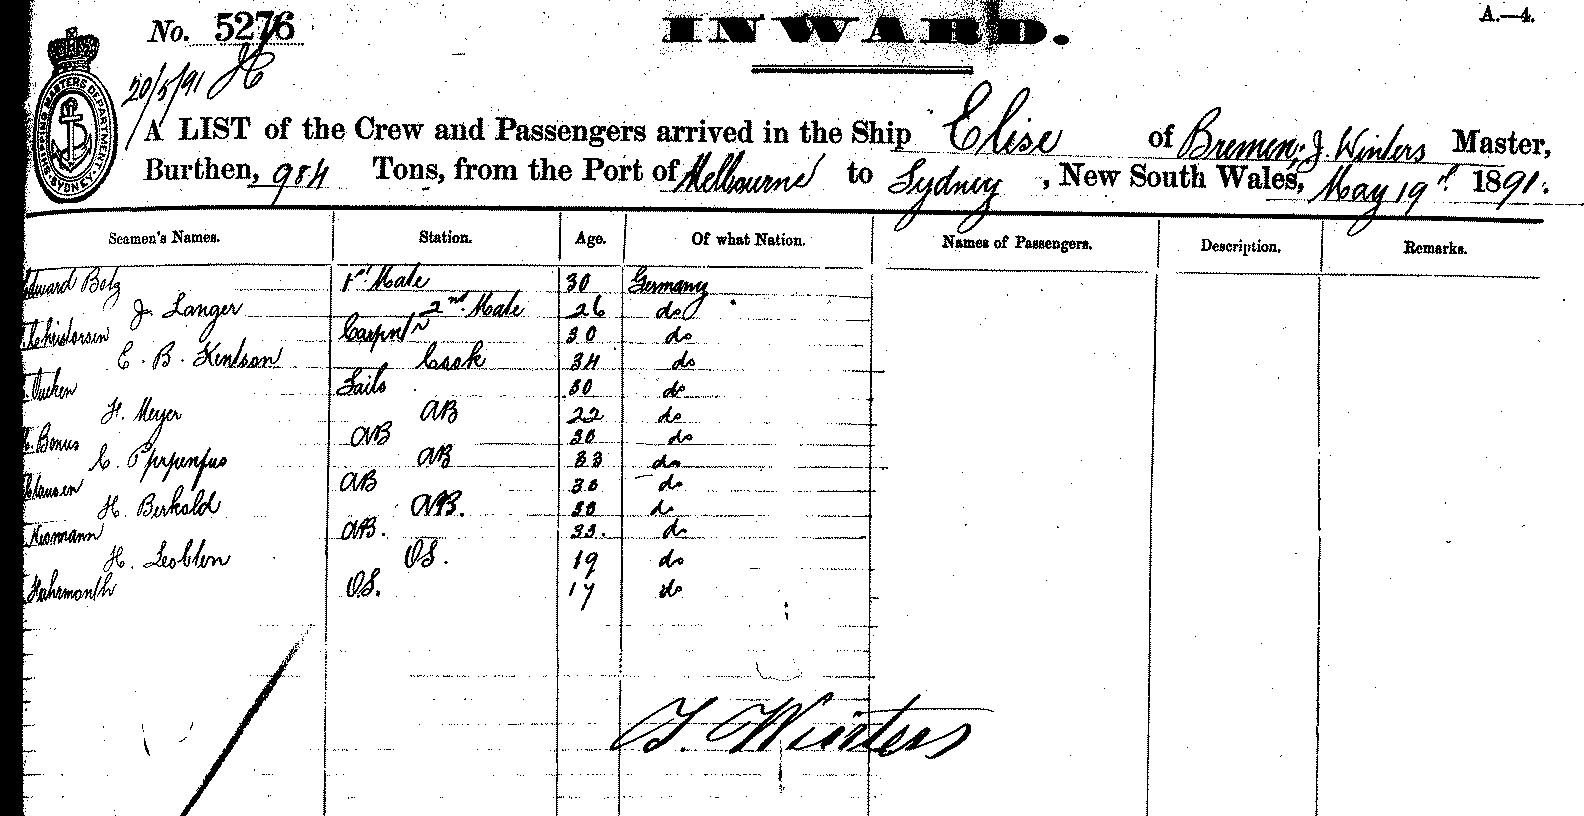 No. 5276
INWARD.
A.—4.
20/5/91
SHIPPING MASTERS DEPARTMENT
SYDNEY
A LIST of the Crew and Passengers arrived in the Ship Elise of Bremen, J. Winters Master,
Burthen, 984 Tons, from the Port of Melbourne to Sydney, New South Wales, May 19th 1891.
Seamen's Names. Station. Age. Of what Nation. Names of Passengers. Description. Remarks.
Edward Botz 1st Mate 30 Germany
J. Langer 2nd Mate 26 do
Christorsen Carpntr 30 do
C. B. Kentson Cook 34 do
Sails 30 do
H. Meyer AB 22 do
Bonus AB 30 do
C. AB 33 do
Clausen AB 30 do
H. Berkald AB. 30 do
AB. 33. do
H. OS. 19 do
OS. 17 do
J. Winters